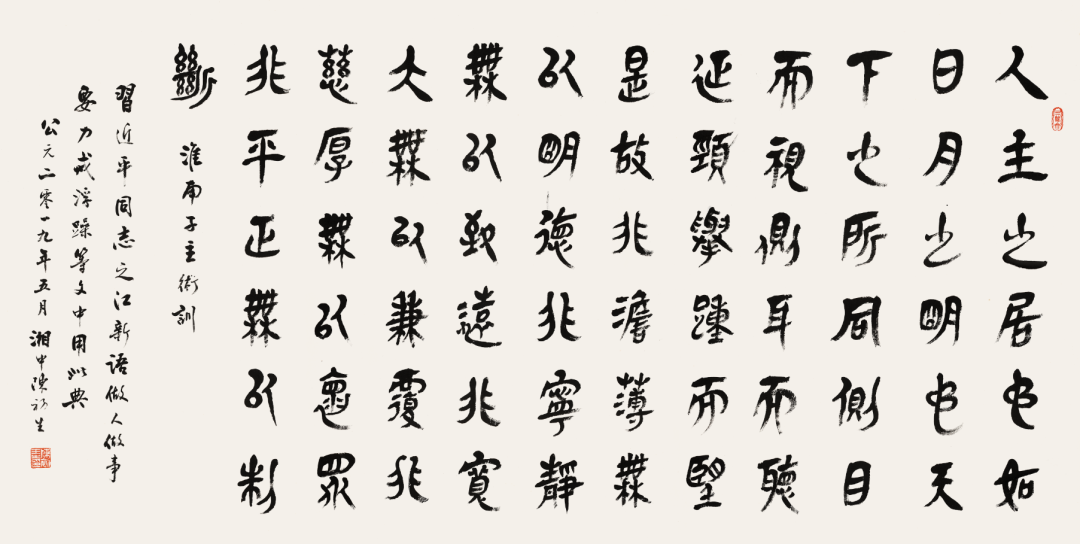 人主之居也如
日月之明也天
下之所同側目
而視側耳而聽
延頸舉踵而望
是故非澹薄無
以明德非寧靜
無以致遠非寬
大無以兼覆非
慈厚無以懷眾
非平正無以制
斷 淮南子主術訓
習近平同志之江新語做人做事
要力戒浮躁等文中用此典
公元二零一九年五月湘中陳初生